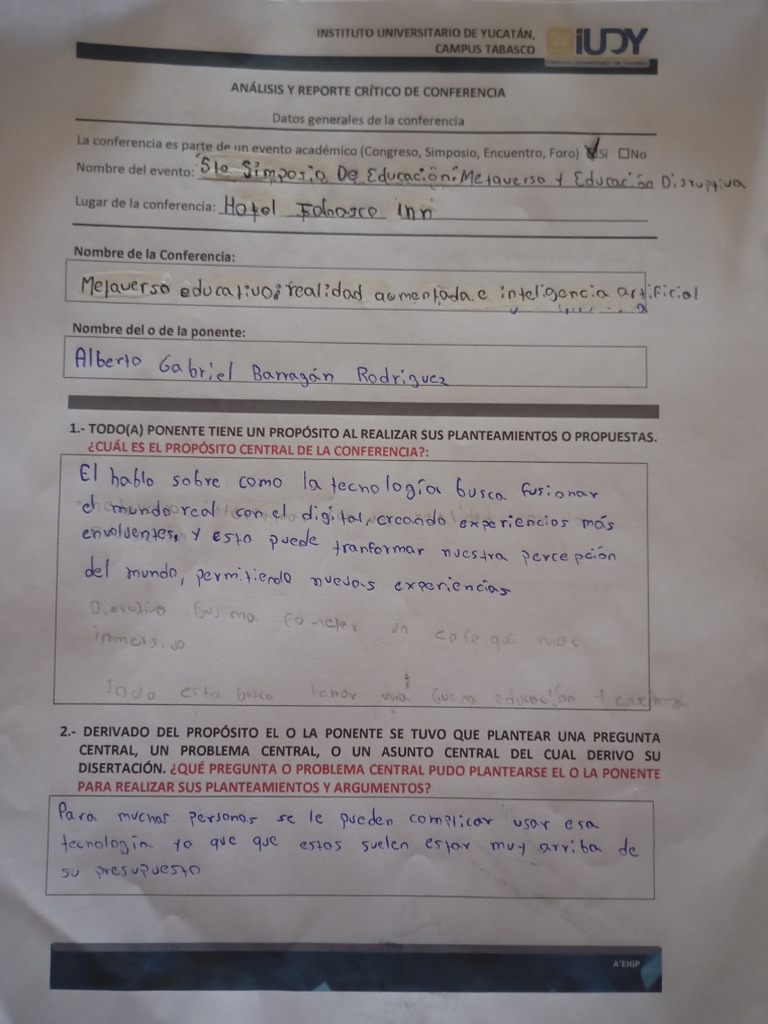 INSTITUTO UNIVERSITARIO DE YUCATÁN,
CAMPUS TABASCO
iUDY
Instituto Universitario de Yucatán
ANÁLISIS Y REPORTE CRÍTICO DE CONFERENCIA
Datos generales de la conferencia
La conferencia es parte de un evento académico (Congreso, Simposio, Encuentro, Foro) Si No
Nombre del evento: 5to Simposio De Educación: Metaverso y Educación Disruptiva
Lugar de la conferencia: Hotel Tabasco Inn
Nombre de la Conferencia:
Metaverso educativo: realidad aumentada e inteligencia artificial
Nombre del o de la ponente:
Alberto Gabriel Barragán Rodriguez
1.- TODO(A) PONENTE TIENE UN PROPÓSITO AL REALIZAR SUS PLANTEAMIENTOS O PROPUESTAS.
¿CUÁL ES EL PROPÓSITO CENTRAL DE LA CONFERENCIA?:
El hablo sobre como la tecnología busca fusionar
el mundo real con el digital, creando experiencios más
envolventes, y esto puede tranformar nuestra percepción
del mundo, permitiendo nuevas experiencias
un que mas
inmersivo
todo esto busca tener una buena educación
2.- DERIVADO DEL PROPÓSITO EL O LA PONENTE SE TUVO QUE PLANTEAR UNA PREGUNTA
CENTRAL, UN PROBLEMA CENTRAL, O UN ASUNTO CENTRAL DEL CUAL DERIVO SU
DISERTACIÓN. ¿QUÉ PREGUNTA O PROBLEMA CENTRAL PUDO PLANTEARSE EL O LA PONENTE
PARA REALIZAR SUS PLANTEAMIENTOS Y ARGUMENTOS?
Para muchas personas se le pueden complicar usar esa
tecnología ya que que estas suelen estar muy arriba de
su presupuesto
A'EJGP